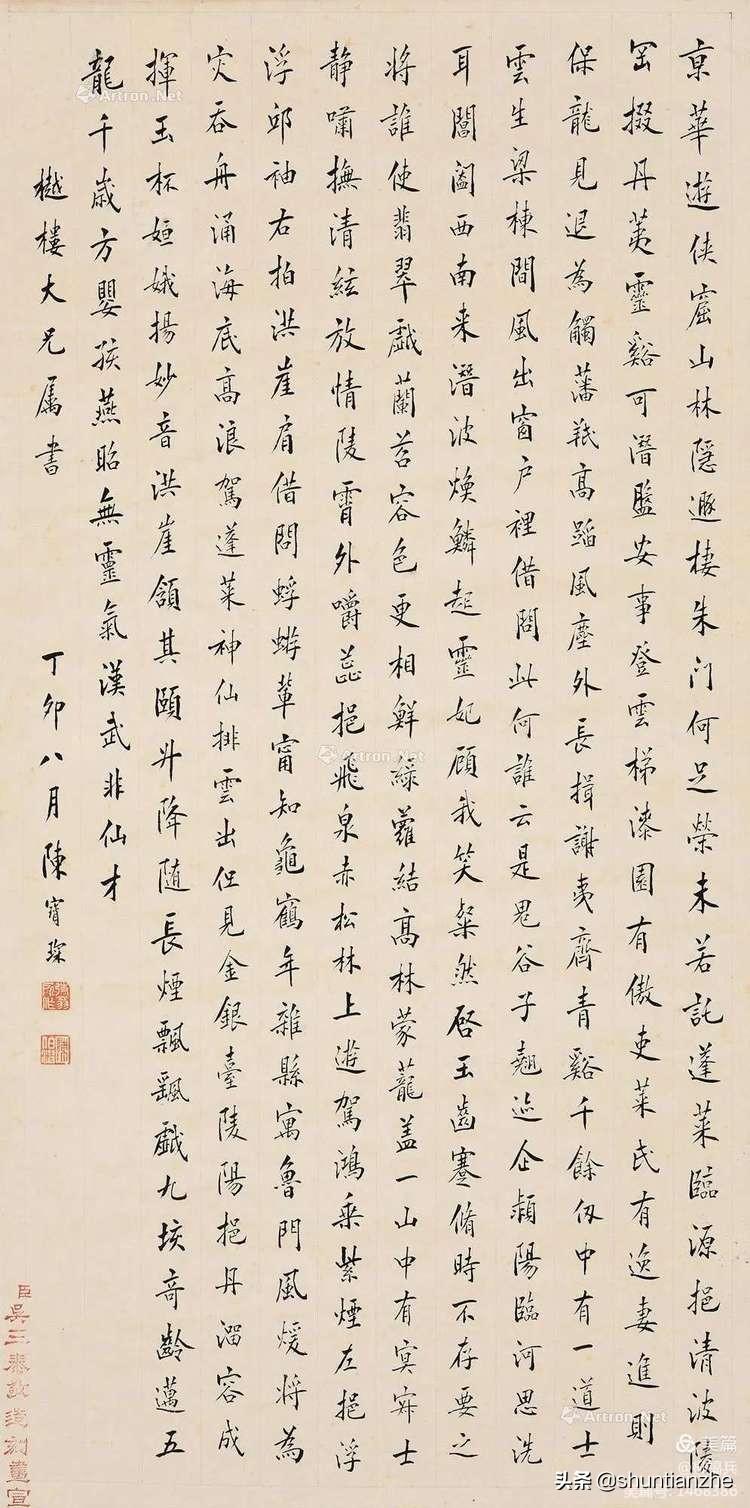 京華遊俠窟山林隱遯棲朱门何足榮未若託蓬萊臨源挹清波陵
罡掇丹荑靈谿可潛盤安事登雲梯漆園有傲吏萊氏有逸妻進則
保龍見退為觸藩羝高蹈風塵外長揖謝夷齊青谿千餘仭中有一道士
雲生梁棟間風出窗户裡借問此何誰云是鬼谷子翹迹企頴陽臨河思洗
耳閶闔西南来潛波煥鱗起靈妃顧我笑粲然啓玉齒蹇脩時不存要之
將誰使翡翠戲蘭苕容色更相鮮綠蘿結高林蒙蘢盖一山中有冥寂士
静嘯撫清絃放情陵霄外嚼蕊挹飛泉赤松林上遊駕鴻乗紫煙左挹浮
浮邱袖右拍洪崖肩借問蜉蝣輩甯知龜鶴年雜縣寓魯門風煖將為
灾吞舟涌海底高浪駕蓬萊神仙排雲出但見金銀臺陵陽挹丹溜容成
揮玉杯姮娥揚妙音洪崖頷其頤升降随長煙飄颻戲九垓奇齡邁五
龍千歲方嬰孩燕昭無靈氣漢武非仙才
樾樓大兄属書
丁卯八月陳寶琛
臣吴三泰敬造刻畫宣
Artron.Net
Artron.Net
Artron.Net
Artron.Net
美篇
头条 @shuntianzhe